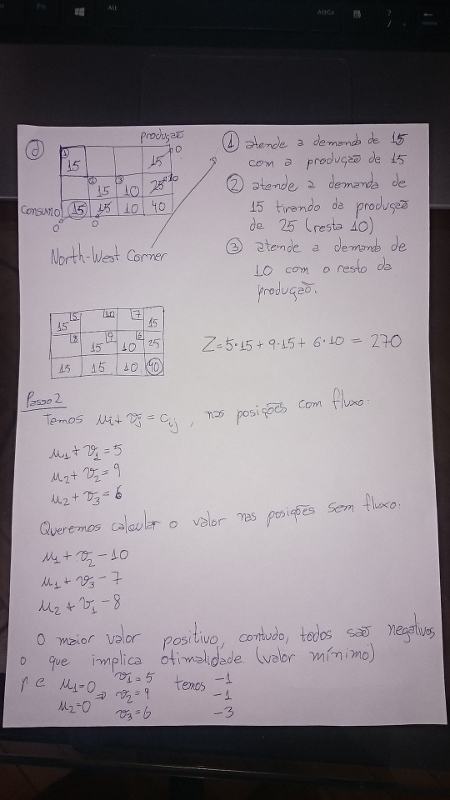 d
produção
1
15
15
0
2
3
15
10
25
10
Consumo
15
15
10
40
0
0
North-West Corner
1 atende a demanda de 15
com a produção de 15
2 atende a demanda de
15 tirando da produção
de 25 (resta 10)
3 atende a demanda de
10 com o resto da
produção.
5
10
7
15
15
8
9
6
15
10
25
15
15
10
40
Z = 5·15 + 9·15 + 6·10 = 270
Passo 2
Temos μi + vj = cij, nas posições com fluxo:
μ1 + v1 = 5
μ2 + v2 = 9
μ2 + v3 = 6
Queremos calcular o valor nas posições sem fluxo.
μ1 + v2 - 10
μ1 + v3 - 7
μ2 + v1 - 8
O maior valor positivo, contudo, todos são negativos
o que implica otimalidade (valor mínimo)
μ1=0 ⇒ v1 = 5 temos -1
μ2=0 v2 = 9 -1
v3 = 6 -3